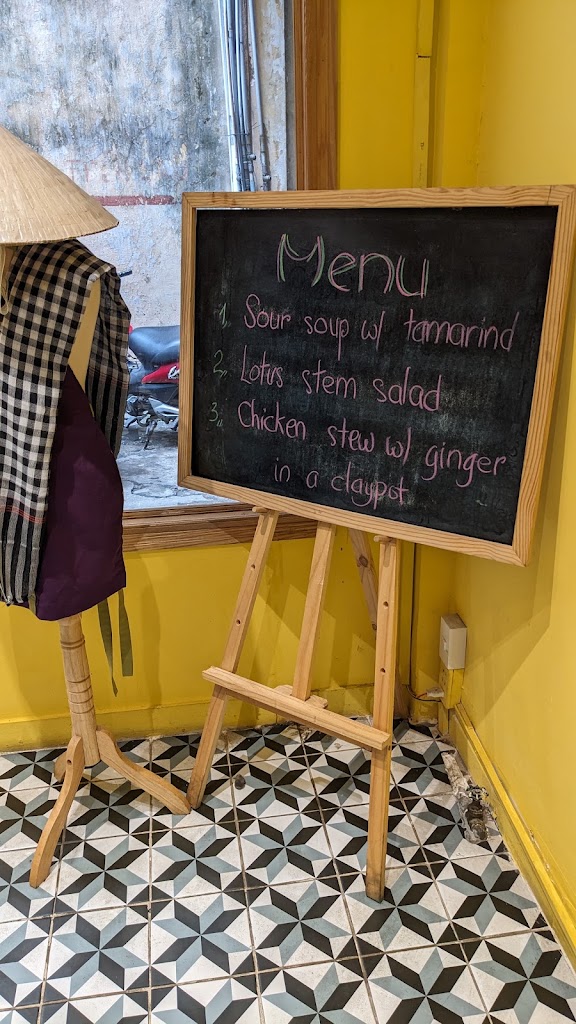 Menu
1,, Sour soup w/ tamarind
2,, Lotus stem salad
3,, Chicken stew w/ ginger
in a claypot